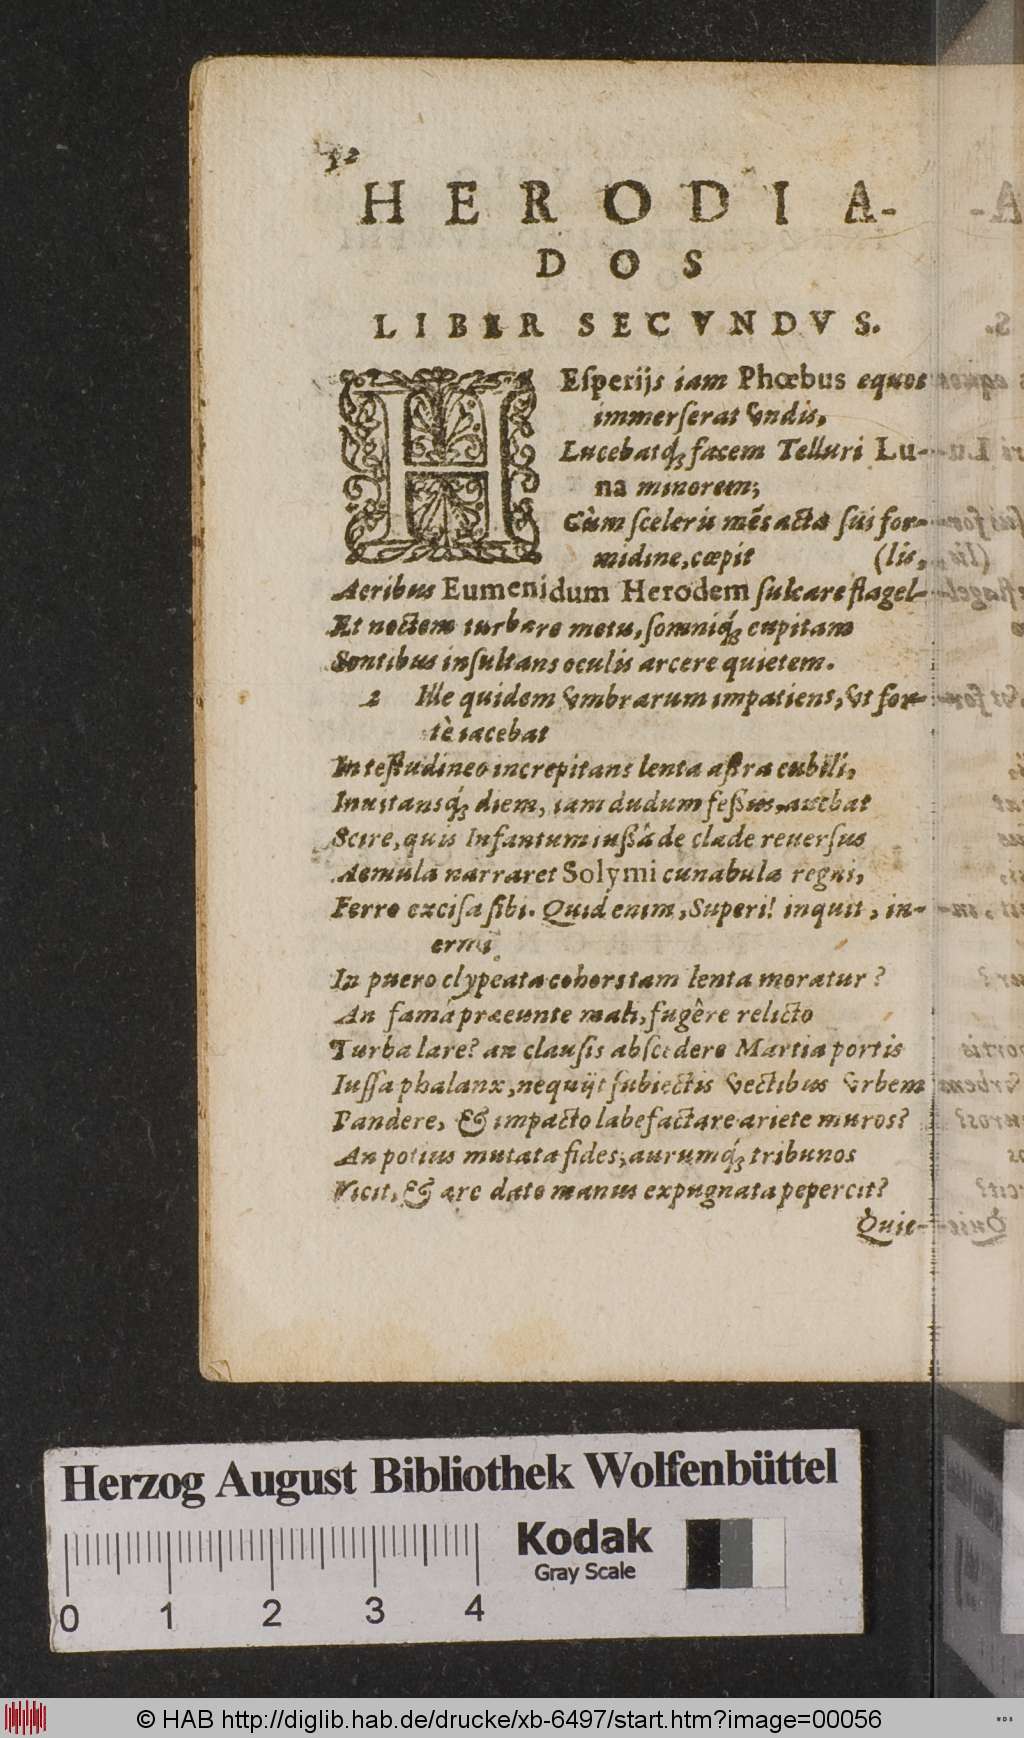 52
HERODIA-
DOS
LIBER SECVNDVS.
HEſperijs iam Phœbus equos
immerſerat vndis,
Lucebatq́; facem Telluri Lu-
na minorem;
Cùm ſceleris mẽs acta ſui for-
midine, cœpit (lis,
Aeribus Eumenidum Herodem ſulcare flagel-
Et noctem turbare metu, ſomniq́; cupitam
Sontibus inſultans oculis arcere quietem.
2 Ille quidem vmbrarum impatiens, vt for-
tè iacebat
In teſtudineo increpitans lenta aſtra cubili,
Inuitansq́; diem, iamdudum feſſus, auebat
Scire, quis Infantum iuſſâ de clade reuerſus
Aemula narraret Solymi cunabula regni,
Ferro exciſa ſibi. Quid enim, Superi! inquit, in-
ermi
In puero clypeata cohors tam lenta moratur?
An famâ praeunte mali, fugêre relicto
Turba lare? an clauſis abſcedere Martia portis
Iuſſa phalanx, nequijt ſubiectis vectibus vrbem
Pandere, & impacto labefactare ariete muros?
An potius mutata fides; aurumq́; tribunos
Vicit, & ære dato manus expugnata pepercit?
Quie-
Herzog August Bibliothek Wolfenbüttel
Kodak
Gray Scale
0 1 2 3 4
© HAB http://diglib.hab.de/drucke/xb-6497/start.htm?image=00056